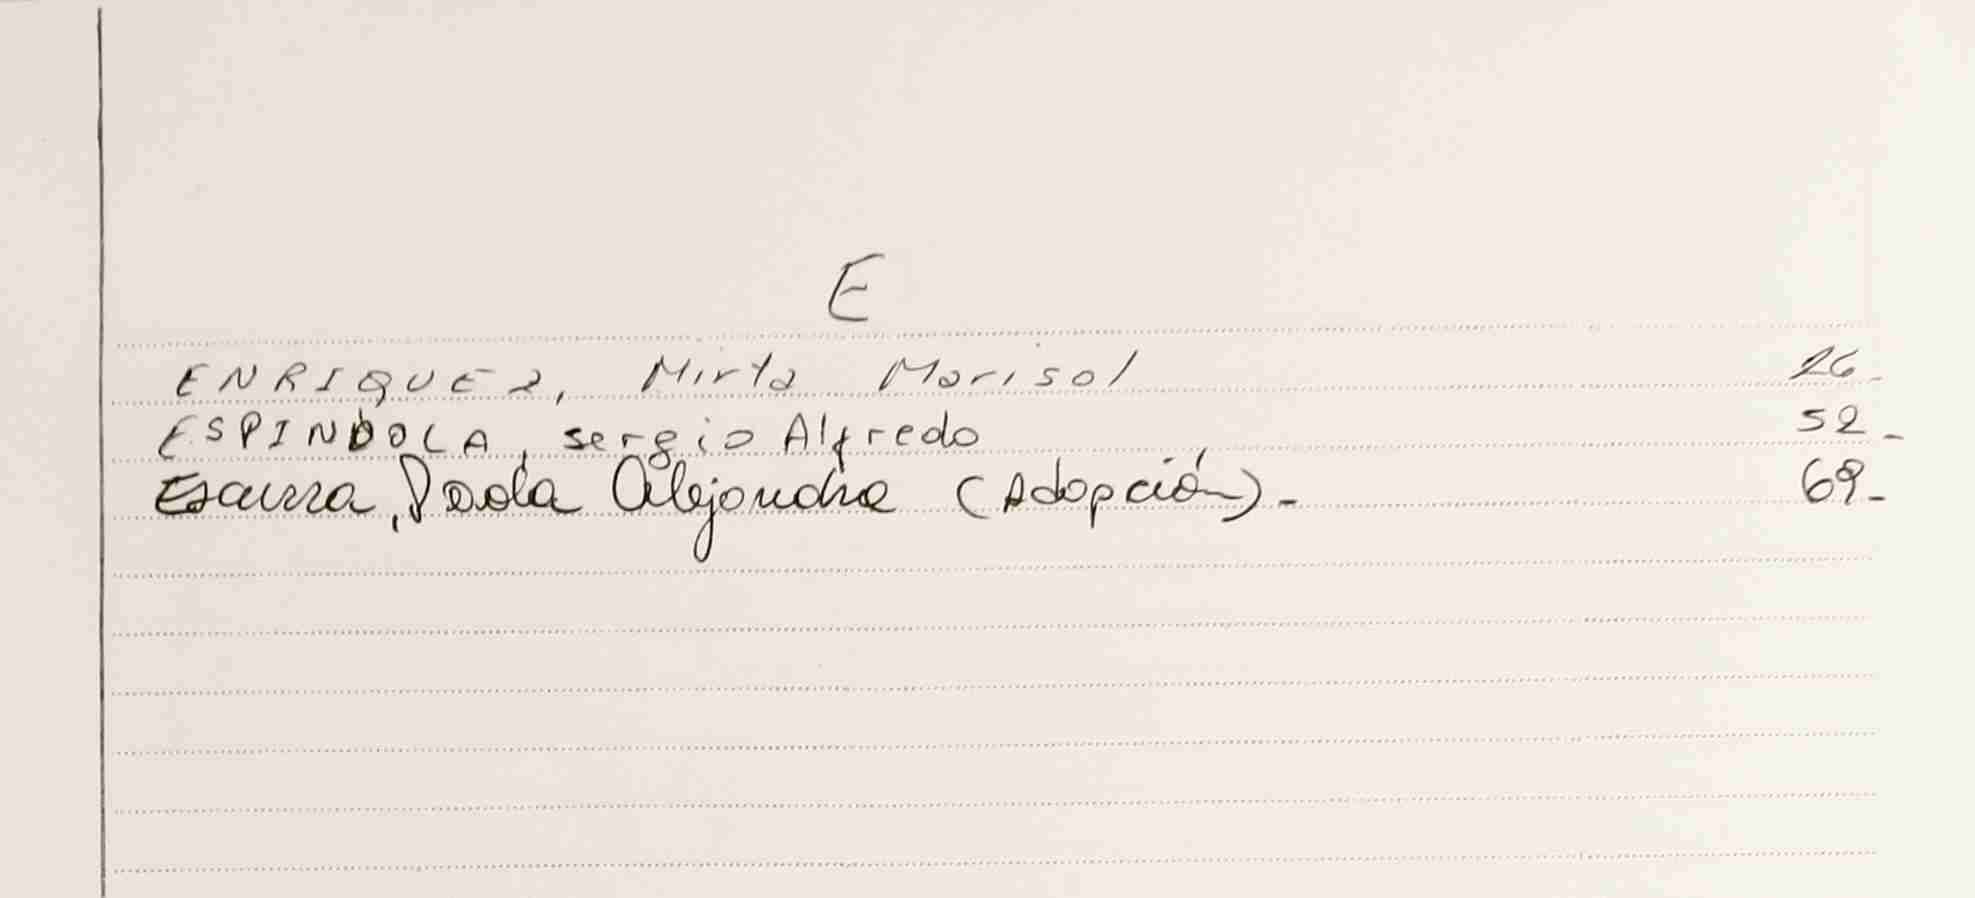 E
ENRIQUEZ, Mirta Marisol 26-
ESPINDOLA, sergio Alfredo 52-
Escurra, Paola Alejandra (Adopción).- 69-